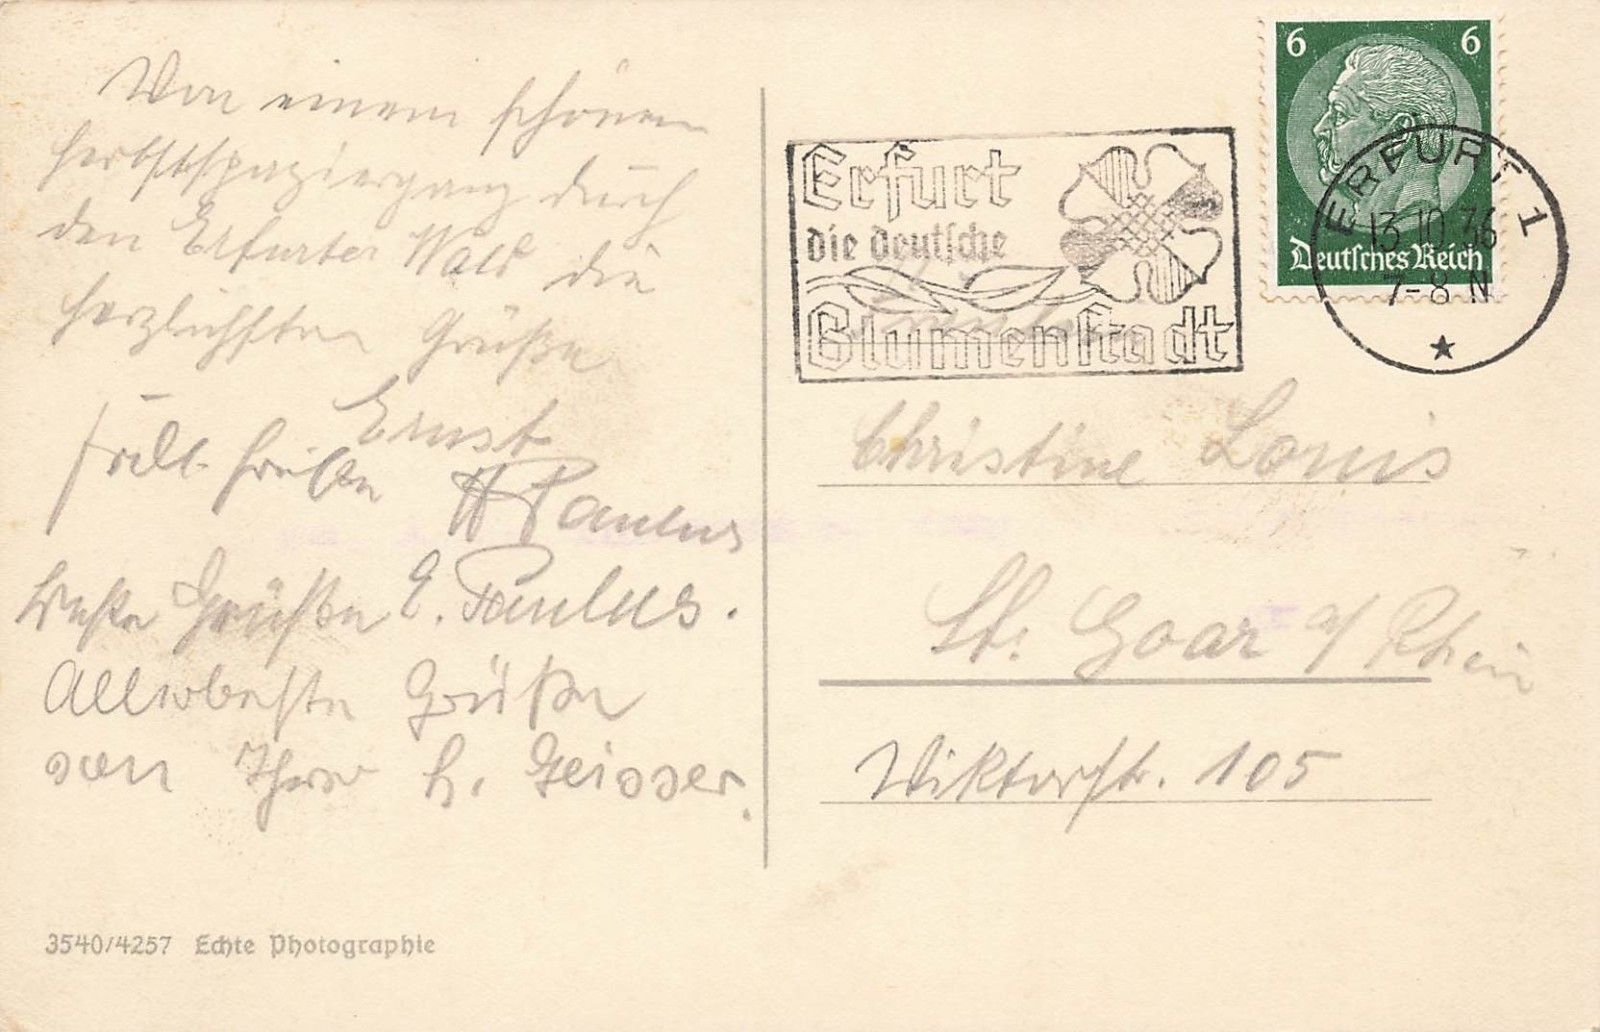 Von einem schönen
Herbstspaziergang durch
den Erfurter Wald die
herzlichsten Grüße
Ernst
Grüße H Paulus
Beste Grüße E. Paulus.
Allerbeste Grüße
von Ihrer H. Geisser.
3540/4257 Echte Photographie
Erfurt
die deutsche
Blumenstadt
6 6
Deutsches Reich
ERFURT 1
13.10.36
7-8 N
Christine Louis
St. Goar a/ Rhein
Viktorstr. 105